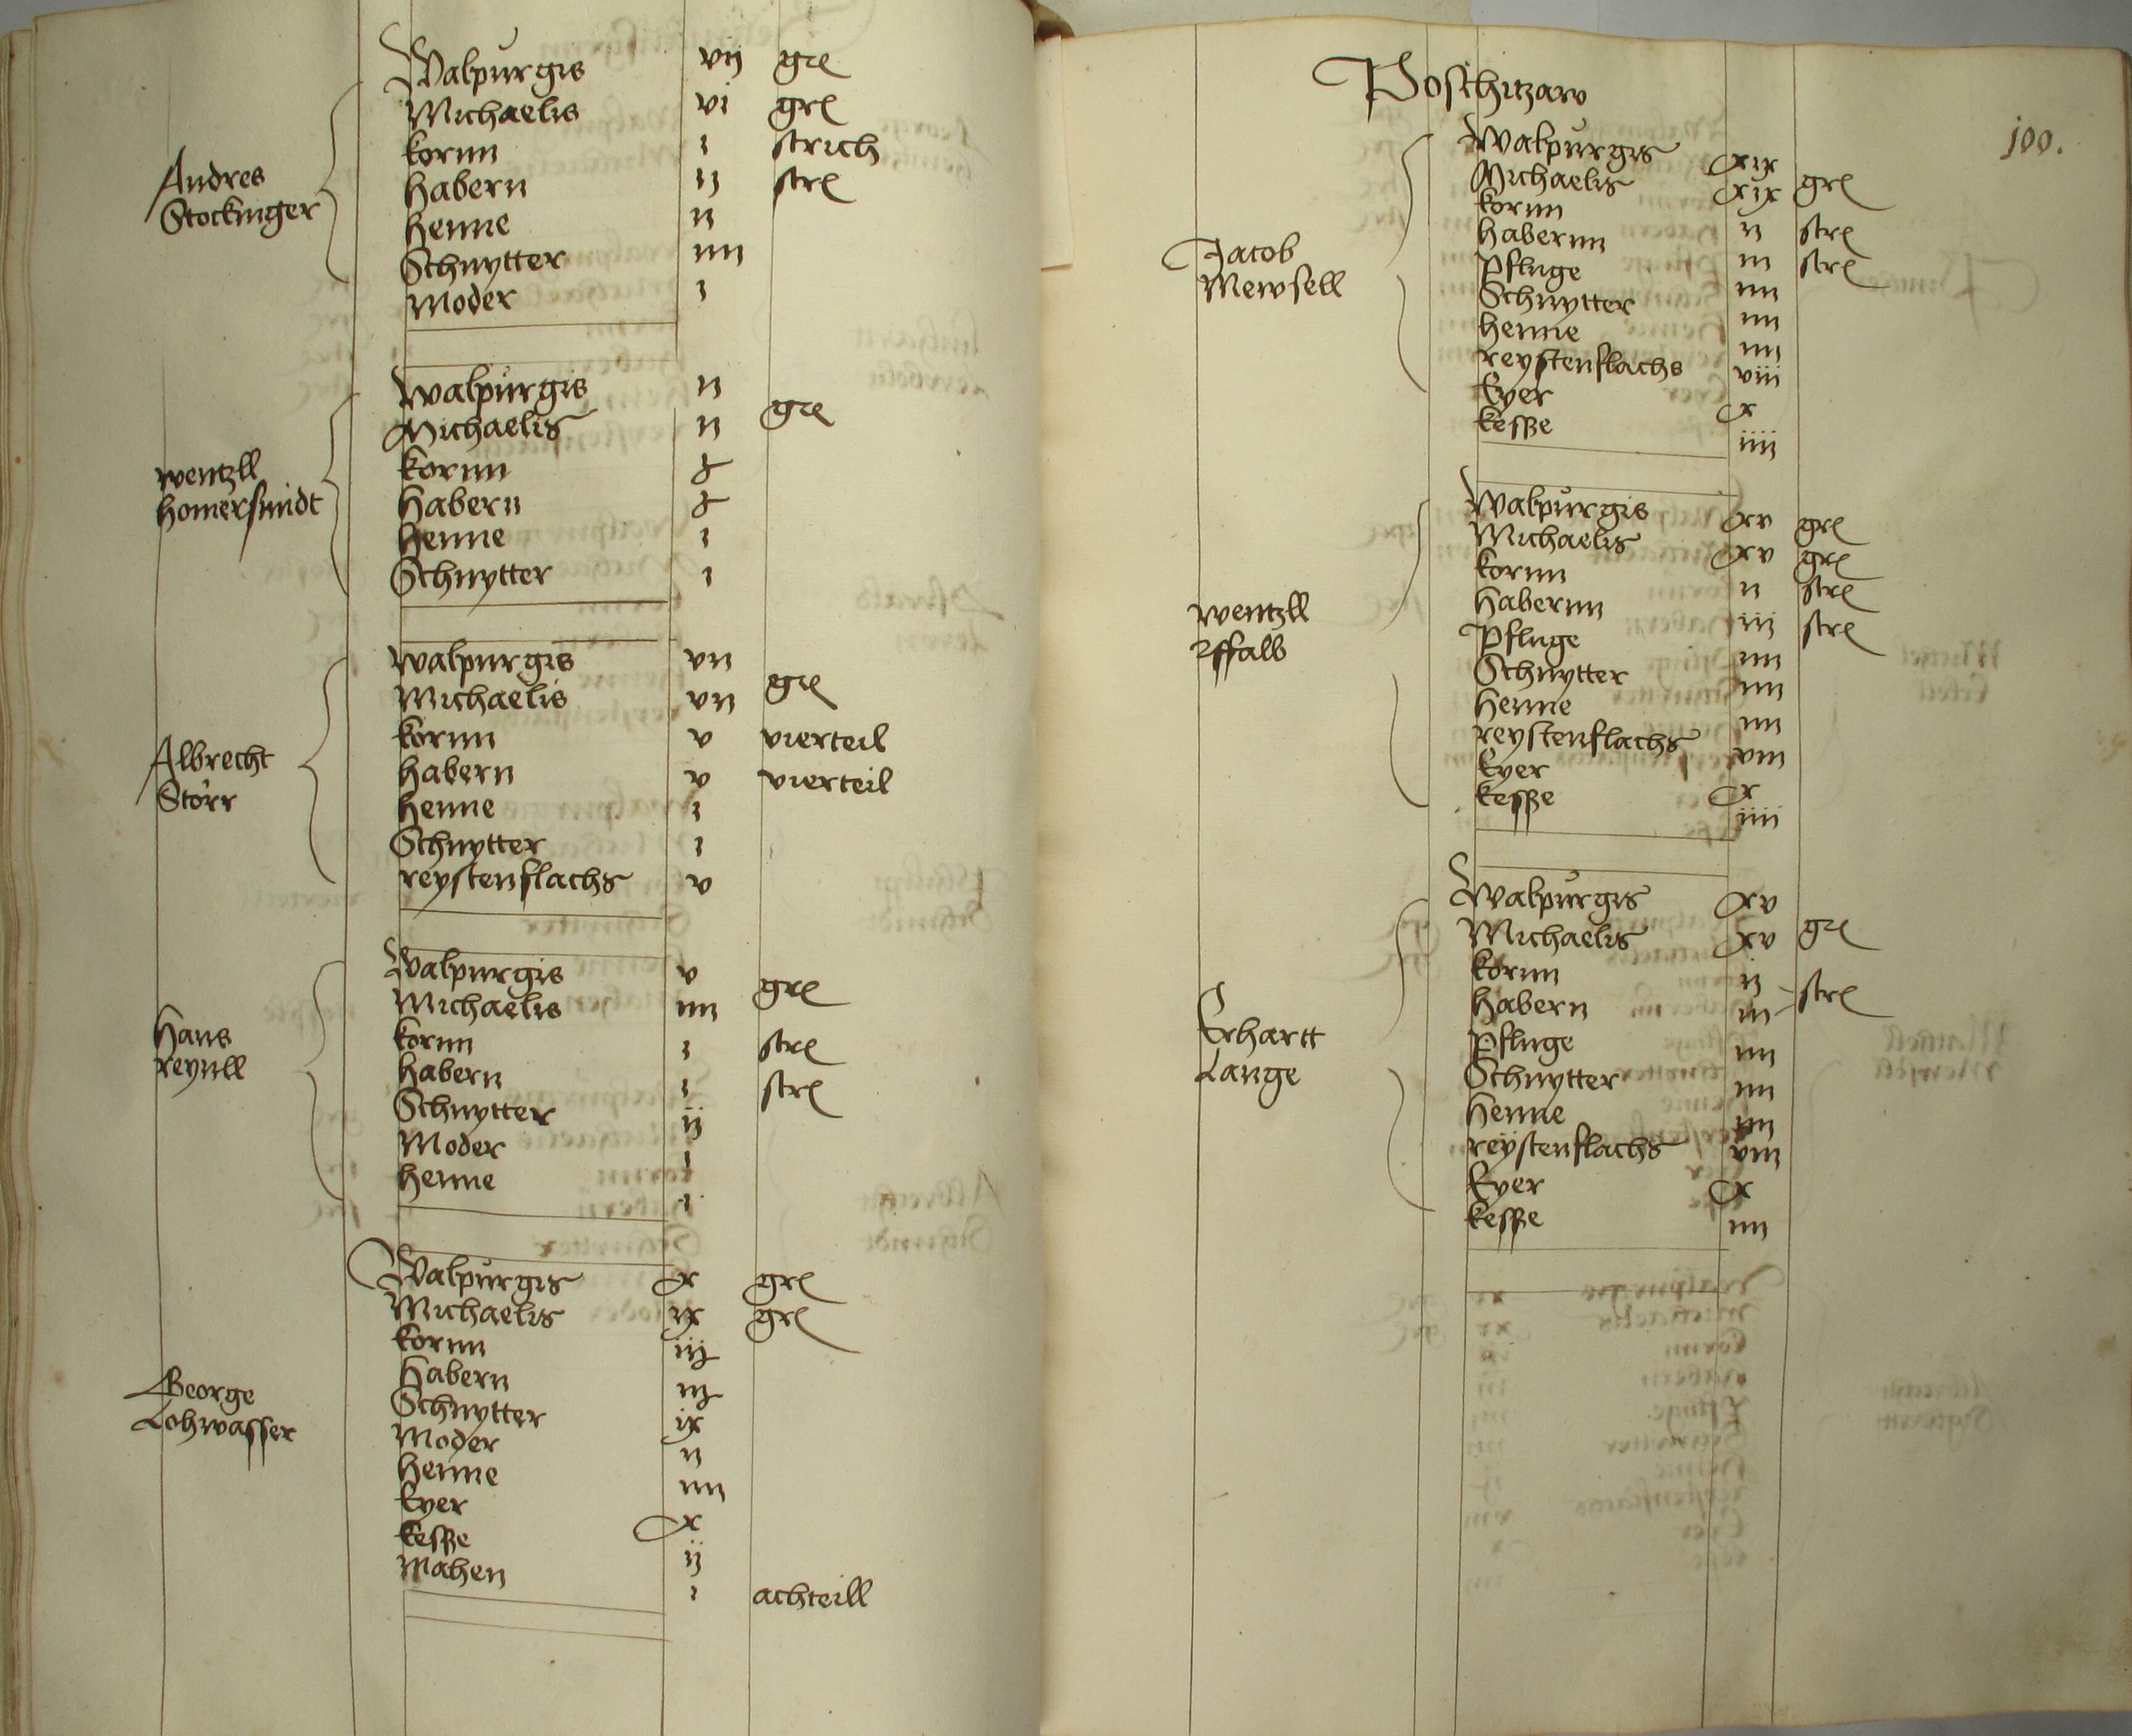 Andres
Stockinger
Walpurgis vij gre
Michaelis vi gre
kornn i strich
habern ii stre
henne ii
Schnytter iiii
Moder i
wentzll
homersmidt
Walpurgis ii
Michaelis ii gre
kornn
habern
henne i
Schnytter i
Albrecht
Störr
Walpurgis vii
Michaelis vii gre
kornn v vierteil
habern v vierteil
henne i
Schnytter i
reystenflachs v
Hans
reynll
Walpurgis v
Michaelis iiii gre
kornn i stre
habern i stre
Schnytter ij
Moder i
henne i
George
Lohwasser
Walpurgis x gre
Michaelis ix gre
kornn
Habern
Schnytter ix
Moder ii
henne iiii
Eyer x
kesße ij
Mahen i achteill
Poschitzaw
100.
Jacob
Mewsell
Walpurgis xix
Michaelis xix gre
kornn ii stre
habernn iii stre
Pfluge iiii
Schnytter iiii
henne iiii
reystenflachs viii
Eyer x
kesße iiii
wentzll
Walpurgis xv gre
Michaelis xv gre
kornn ii stre
habernn iii stre
Pfluge iiii
Schnytter iiii
Henne iiii
reystenflachs viii
Eyer x
kesße iiii
Erhartt
Lange
Walpurgis xv
Michaelis xv gre
kornn ii
habern iii stre
Pfluge iiii
Schnytter iiii
Henne iiii
reystenflachs viii
Eyer x
kesße iiii